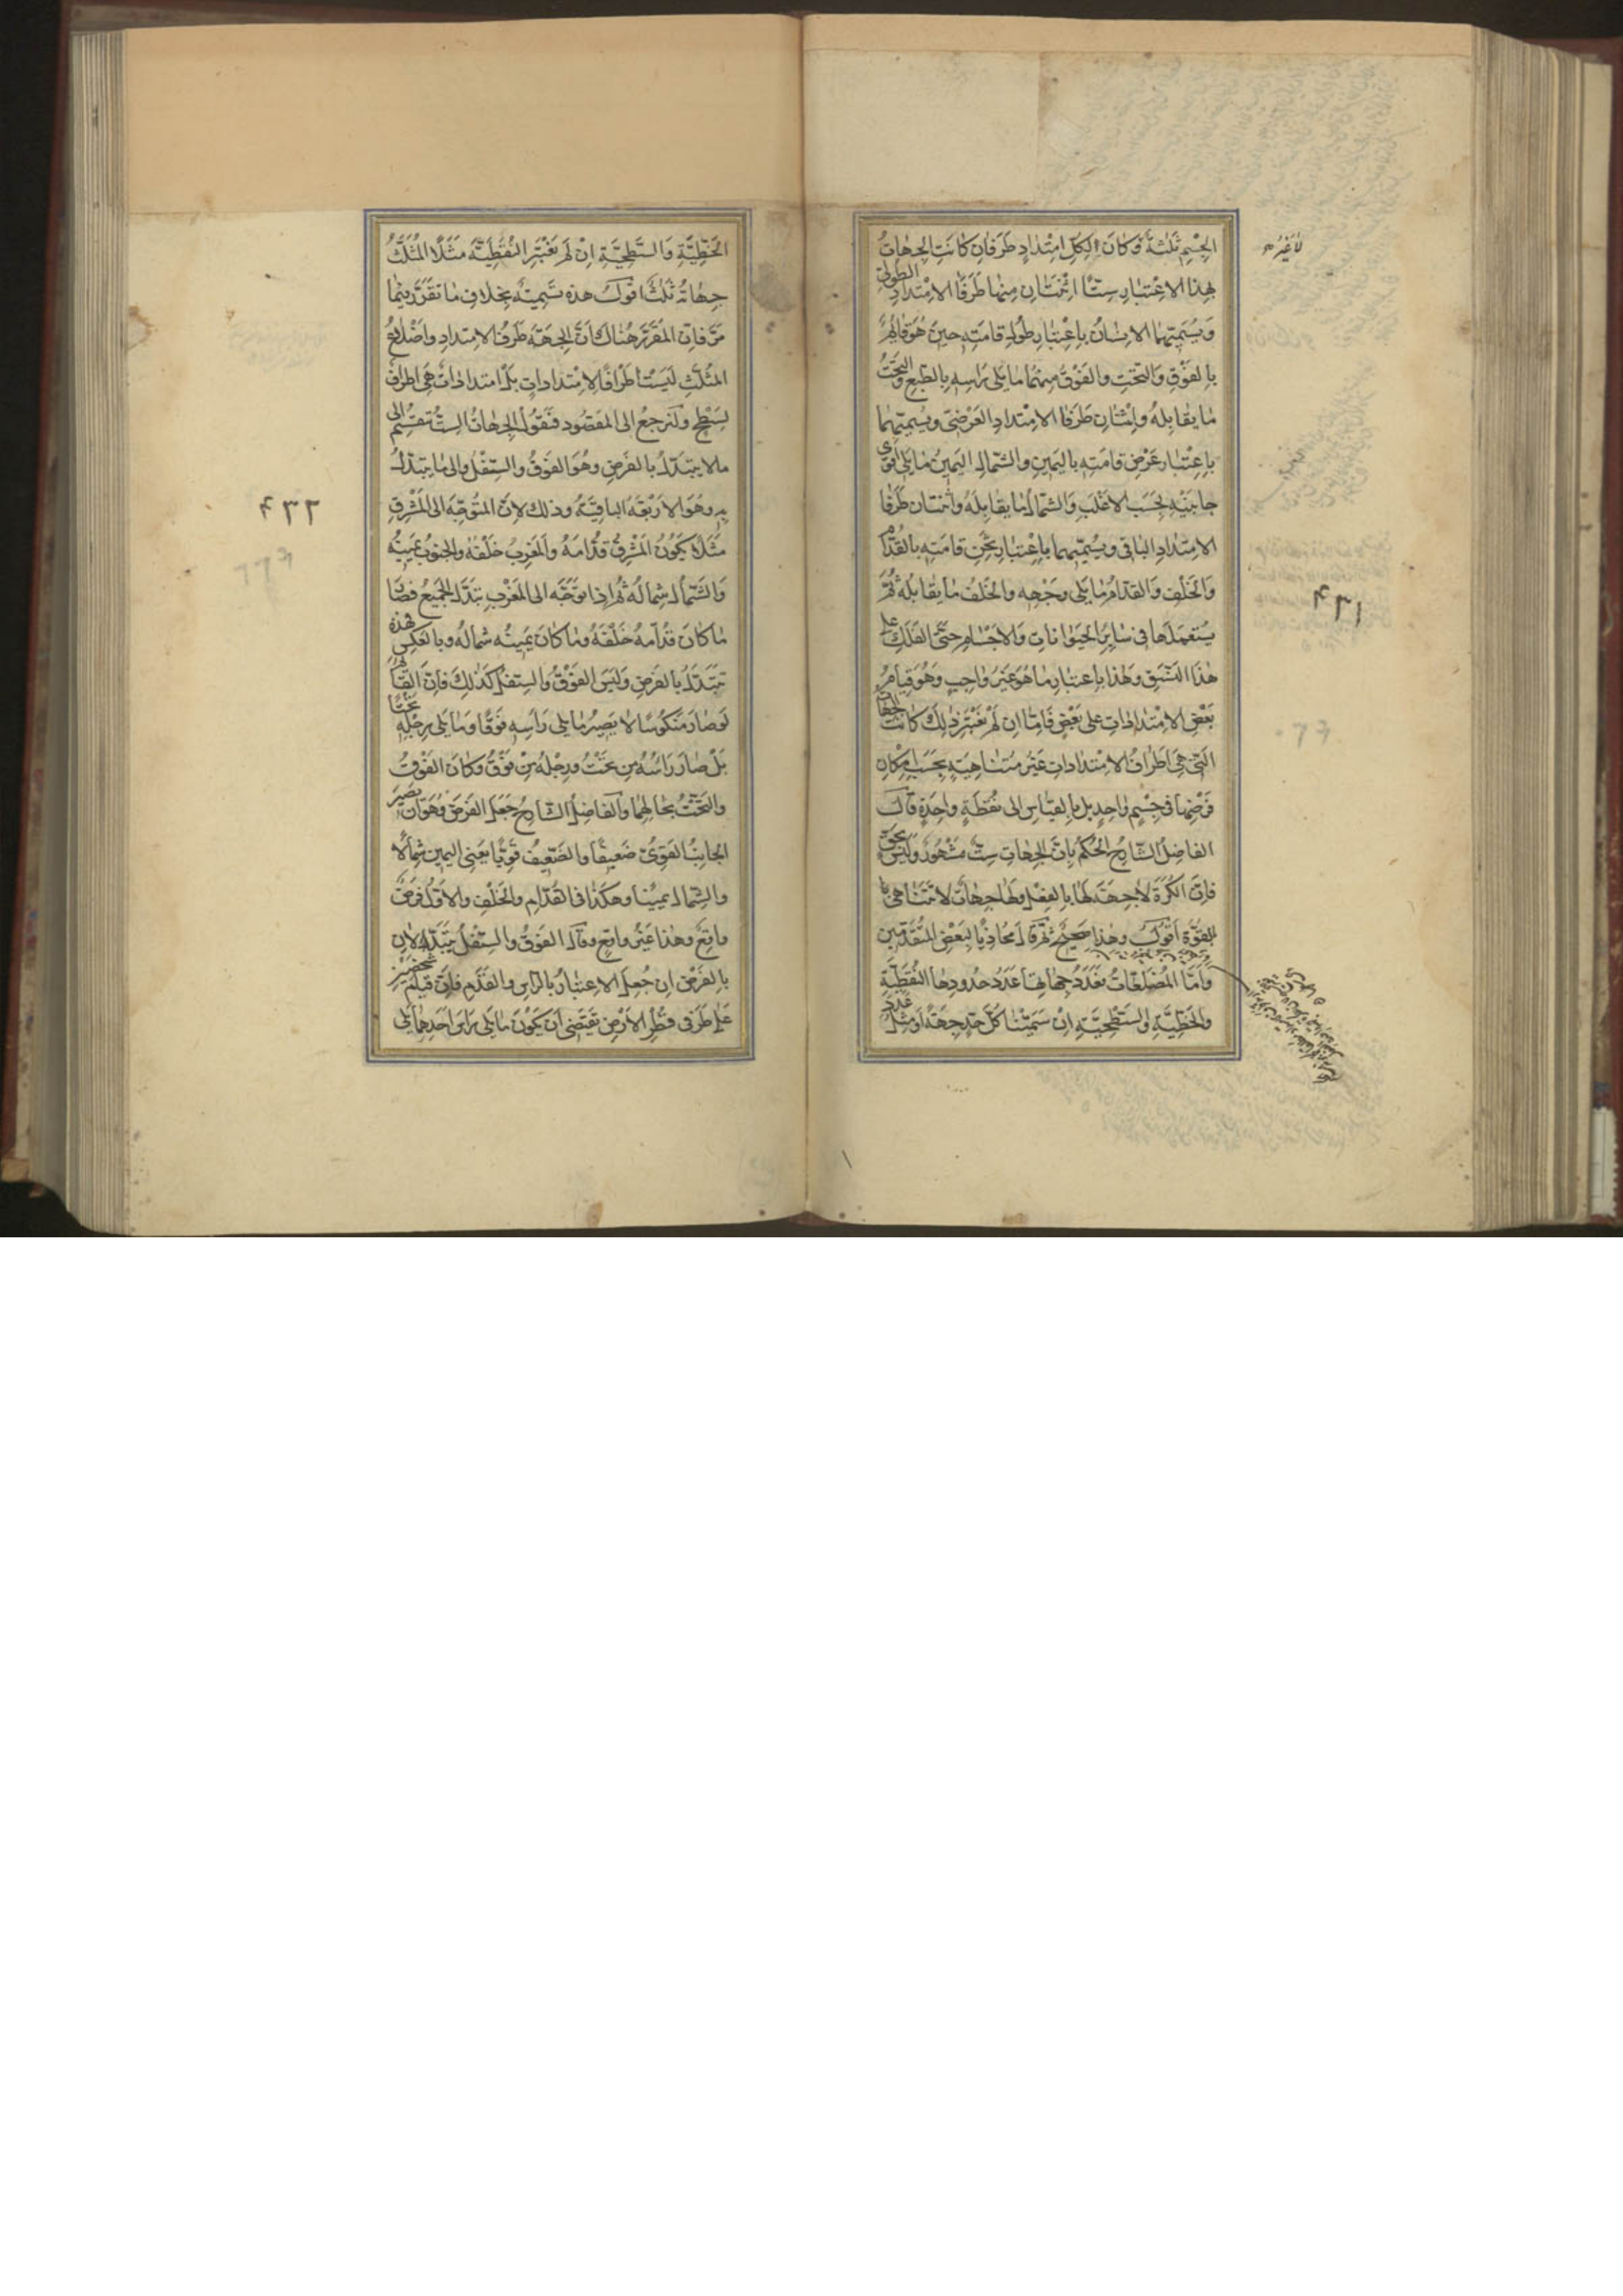 الجِسْمِ ثَلٰثَةً وَكانَ لِكلّ امْتِدادٍ طَرَفانِ كانَتِ الجِهاتُ
لاغَيْرُ
بِهذا الاعْتبارِ ستّاً اثْنَتانِ مِنها طَرَفا الامْتِدادِ الطُّولىّ
وَيُسَمّيهما الانسانُ باعْتِبارِ طُولِ قامَتِهِ حينَ هُوَ قائمٌ
بالفَوْقِ وَالتحْتِ والفَوْقُ مِنهُما ما يَلى رَاسِهِ بالطّبعِ وَالتّحتُ
ما يُقابِلهُ وَاثْنتانِ طَرَفا الامْتِدادِ العَرْضىّ ويُسمّيهما
باعْتِبارِ عَرْضِ قامَتِهِ باليَمينِ والشّمالِ اليَمينُ ما يَلى اقْوى
جانِبَيْهِ بحَسَبِ الاغْلَبِ وَالشّمالُ ما يُقابِلَهُ واثنتانِ طَرَفا
الامتِدادِ الباقى ويُسَمّيهما باعْتبارِ ثِخَنِ قامَتِهِ بالقُدّامِ
وَالخَلْفِ وَالقدّامُ ما يَلى وجْهِهِ والخَلْفُ ما يُقابِلُه ثُمّ
يَسْتَعمِلها فى سايِرِ الحَيَوانات وَالاجْسامِ حَتّى الفَلَكِ على
هٰذا النّسَقِ وَهٰذا باعتبارِ ما هُوَ غَيْرُ واجِبٍ وَهُوَ قِيامُ
بَعْضِ الامْتِداداتِ على بَعْضٍ فَامّا انْ لَمْ نَعْتَبِرْ ذلِكَ كانَت الجهاتُ
الّتى هِىَ اَطرافُ الامْتِداداتِ غَيْرَ مُتناهِيَةٍ بحَسَبِ امكانِ
فَرْضِها فى جِسْمٍ واحِدٍ بل بالقِياسِ الى نُقطَةٍ واحِدَةٍ قالَ
الفاضِلُ الشّارِحُ الحُكمُ بِانّ الجِهاتِ سِتّ مَشْهُورٌ وَلَيْسَ بحَقٍّ
فانّ الكُرَةَ لا جِهَةَ لَها بالفِعْلِ ولَها جِهاتٌ لا تَتَناهى
بالقُوّةِ اَقُولُ وهٰذا صَحيحٌ ثُمّ قالَ مُحاذِياً لِبَعْضِ المُتَقَدّمينَ
وَامّا المُضَلّعاتُ فعَدَدُ جِهاتِها عَدَدُ حُدُودِها النُّقَطِيّةِ
والخَطّيّةِ والسّطْحِيّةِ انْ سَمّيْنا كلّ حَدٍّ جِهَةً اَو مِثْلُ عَدَدِ
٤٣١
الخَطّيّةِ وَالسّطْحِيّةِ اِنْ لَم نَعْتَبِر النُّقَطِيّةَ مَثَلاً المُثَلّثُ
جِهاتُهُ ثَلٰثٌ اقولُ هذه تَسْمِيَةٌ بِخِلافِ ما تَقَرّرَ فيما
مَرّ فانّ المُقَرّرَ هُناكَ اَنّ الجِهَةَ طَرَفُ الامتِدادِ واَضْلاعُ
المثَلّثِ لَيْسَتْ اَطْرافاً لامْتِداداتٍ بَلْ امتداداتٌ هى اطرافُ
لسَطْحٍ ولْنَرجعْ الى المَقصُودِ فنَقُولُ الجِهاتُ السّتُّ تَنقَسِمُ الى
ما لا يتبَدّلُ بالفَرضِ وهُوَ الفَوقُ والسّفْلُ والى ما يتبَدّلُ
بهِ وهُوَ الاَرْبَعَةُ الباقِيَةُ وذلك لانّ المُتَوجّهَ الى المَشْرِقِ
٤٣٢
مَثَلاً يَكُونُ المَشْرِقُ قُدّامَهُ والمَغرِبُ خَلْفَهُ والجنوبُ يَمينَهُ
وَالشّمالُ شِمالَهُ ثُمّ اذا تَوَجّهَ الى المَغْرِبِ تبَدّلَ الجميعُ فصارَ
ما كانَ قُدّامَهُ خَلْفَهُ وما كانَ يَمينَهُ شِمالَهُ وبالعَكسِ فهذِه
تَتَبَدّلُ بالفَرضِ وَلَيْسَ الفَوْقُ والسفلُ كَذٰلِكَ فانّ القائمَ
لَوصارَ مَنكُوسًا لا يَصِيرُ ما يَلى رَاسِهِ فَوْقًا وَما يَلى رِجْلِهِ تحتًا
بَلْ صارَ رَاسُهُ مِن تَحْتُ ورِجْلُهُ مِن فَوْقُ وكانَ الفَوْقُ
والتَحْتُ بحالِهِما والفاضِلُ الشّارِحُ جَعَلَ الفَرضَ هُوَ ان يَصيرَ
الجانِبُ القَوىّ ضَعيفًا والضّعيفُ قَويّاً يَعنى اليمين شِمالًا
والشّمالُ يَمينًا وهكذا فى القُدّامِ والخَلْفِ والاوّلُ فَرْضٌ
واقِعٌ وهٰذا غَيْرُ واقعٍ وقالَ الفَوقُ والسّفلُ يَتبَدّلانِ
بالفَرْضِ ان جُعِلَ الاعتبارُ بالرّاسِ والقَدَمِ فانّ قِيامَ شَخْصَيْنِ
عَلى طَرَفى قُطْرِ الاَرْضِ يَقتَضى اَنْ يكونَ ما يَلى رَاسَ اَحَدِهما يَلى